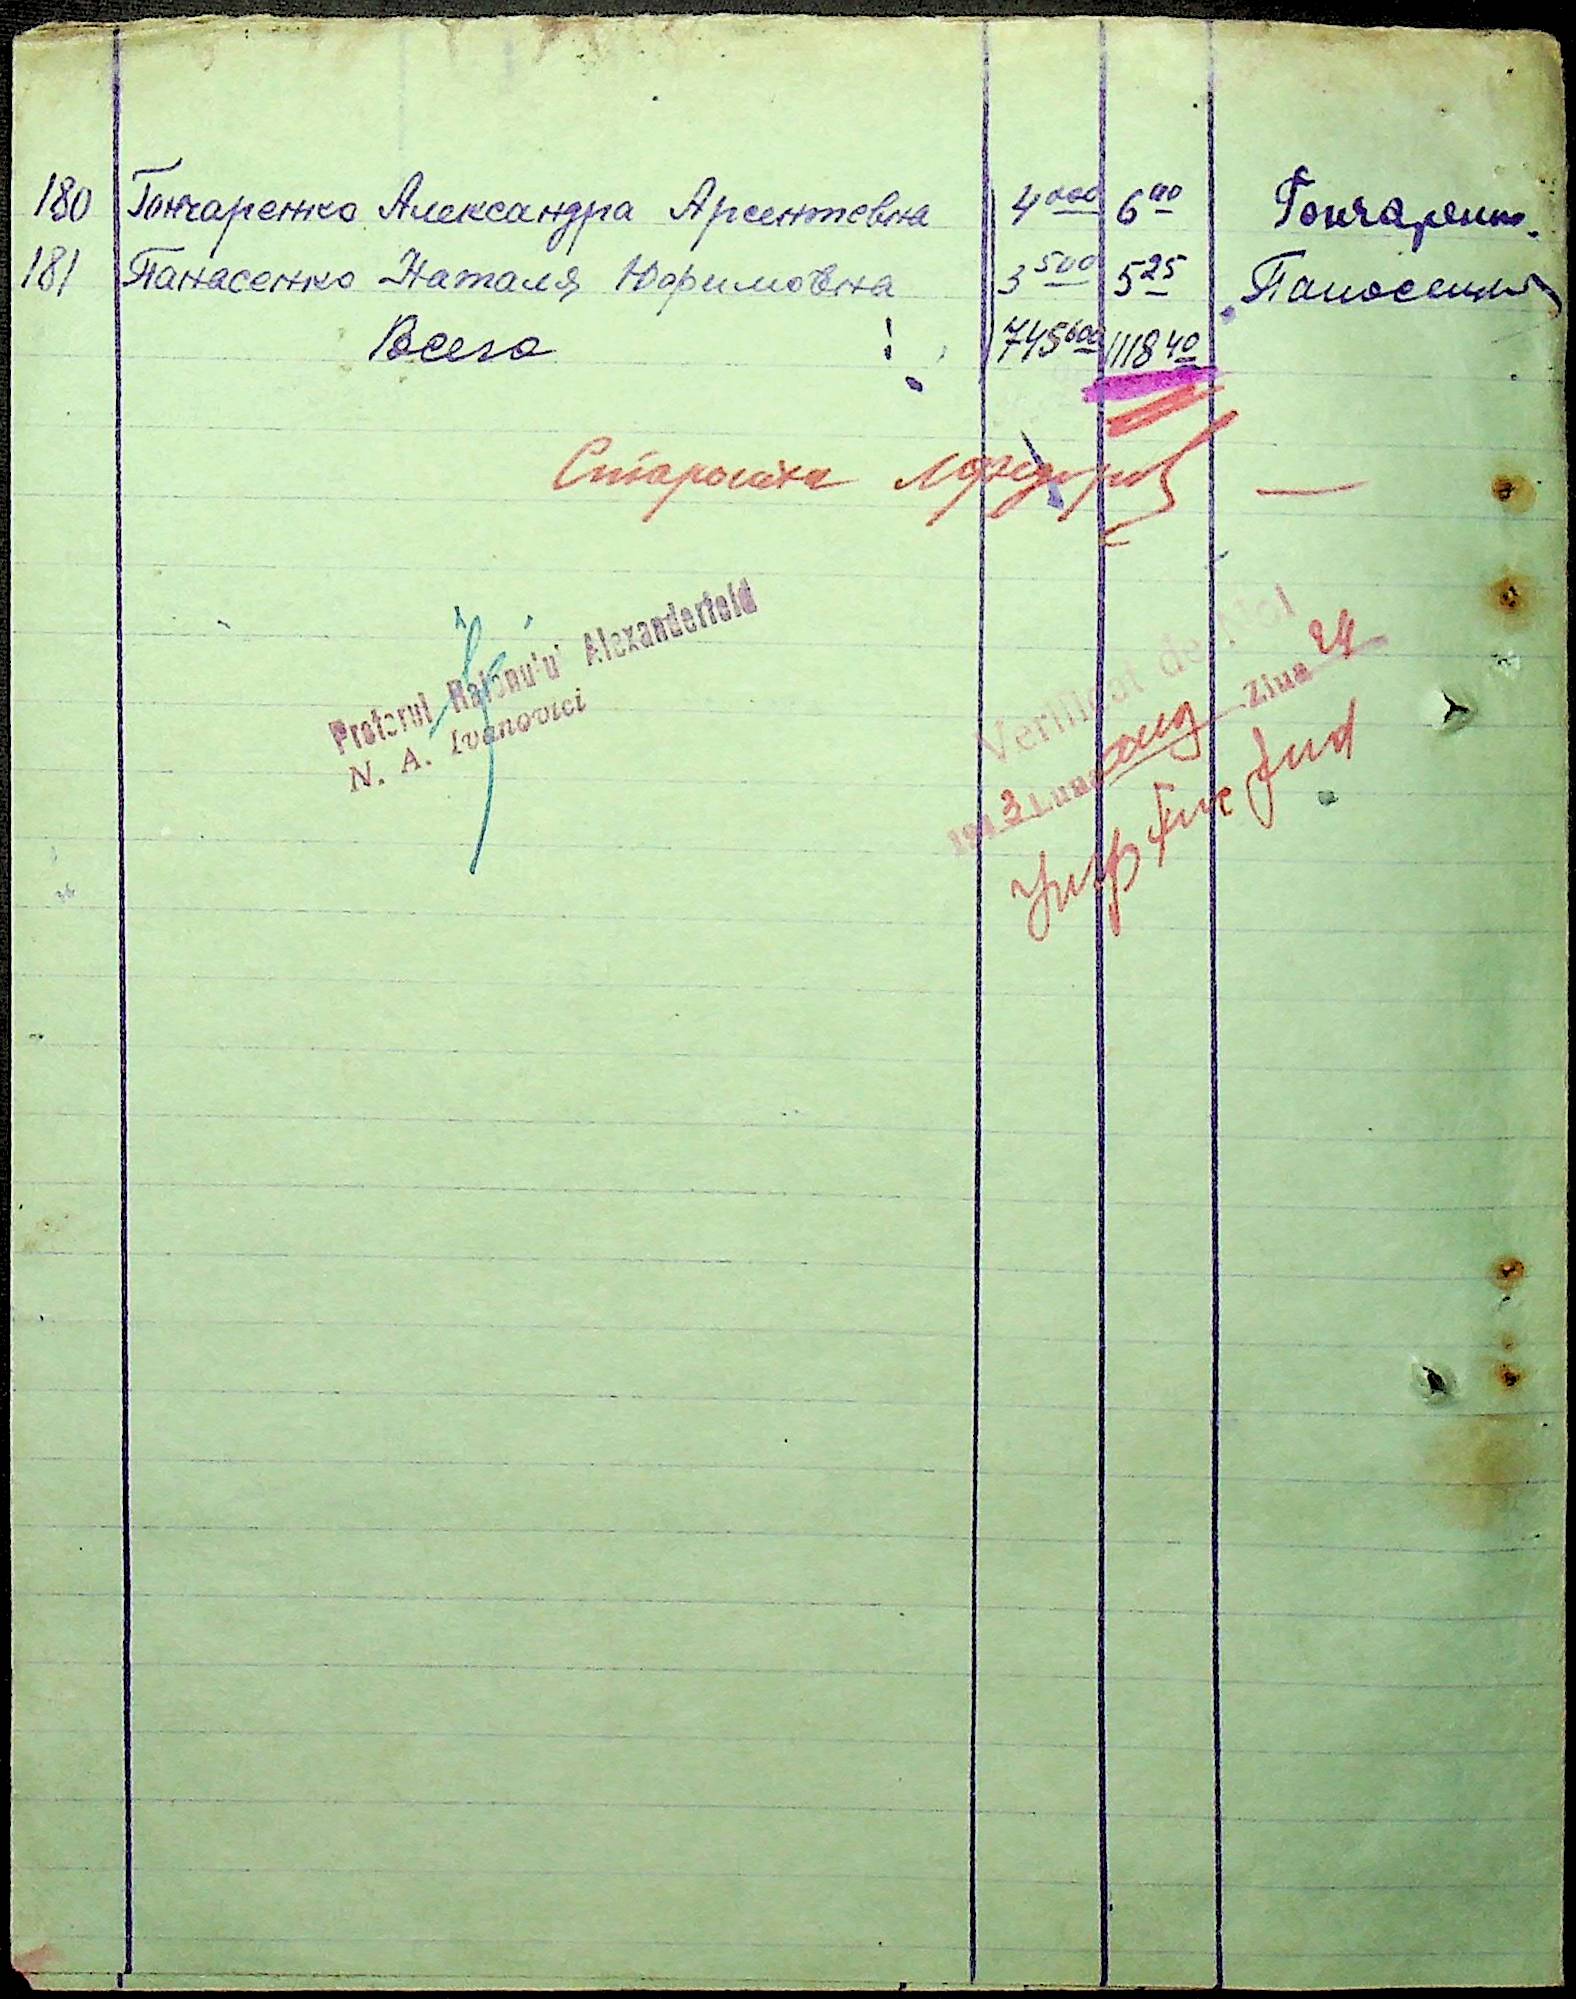 180 Гончаренко Александра Арсентевна 4000 6 00 Гончаренко.
181 Панасенко Наталя Юфимовна 3500 5 25 Панасенко
Всего ! 745600 1118 40
Староста
Pretorul Raionului Alexanderfeld
N. A. Ivanovici
Verificat de Noi
194 3 Luna aug Ziua 24